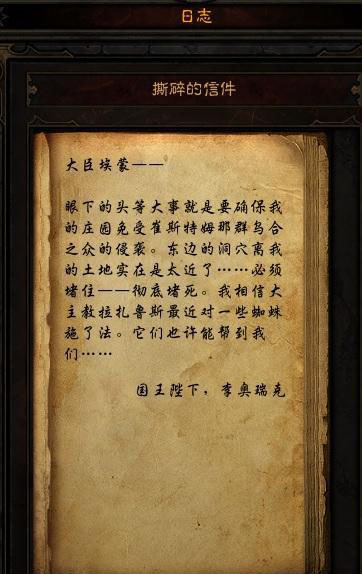 日志
撕碎的信件
大臣埃蒙——
眼下的头等大事就是要确保我
的庄园免受崔斯特姆那群乌合
之众的侵袭。东边的洞穴离我
的土地实在是太近了……必须
堵住——彻底堵死。我相信大
主教拉扎鲁斯最近对一些蜘蛛
施了法。它们也许能帮到我
们……
国王陛下，李奥瑞克